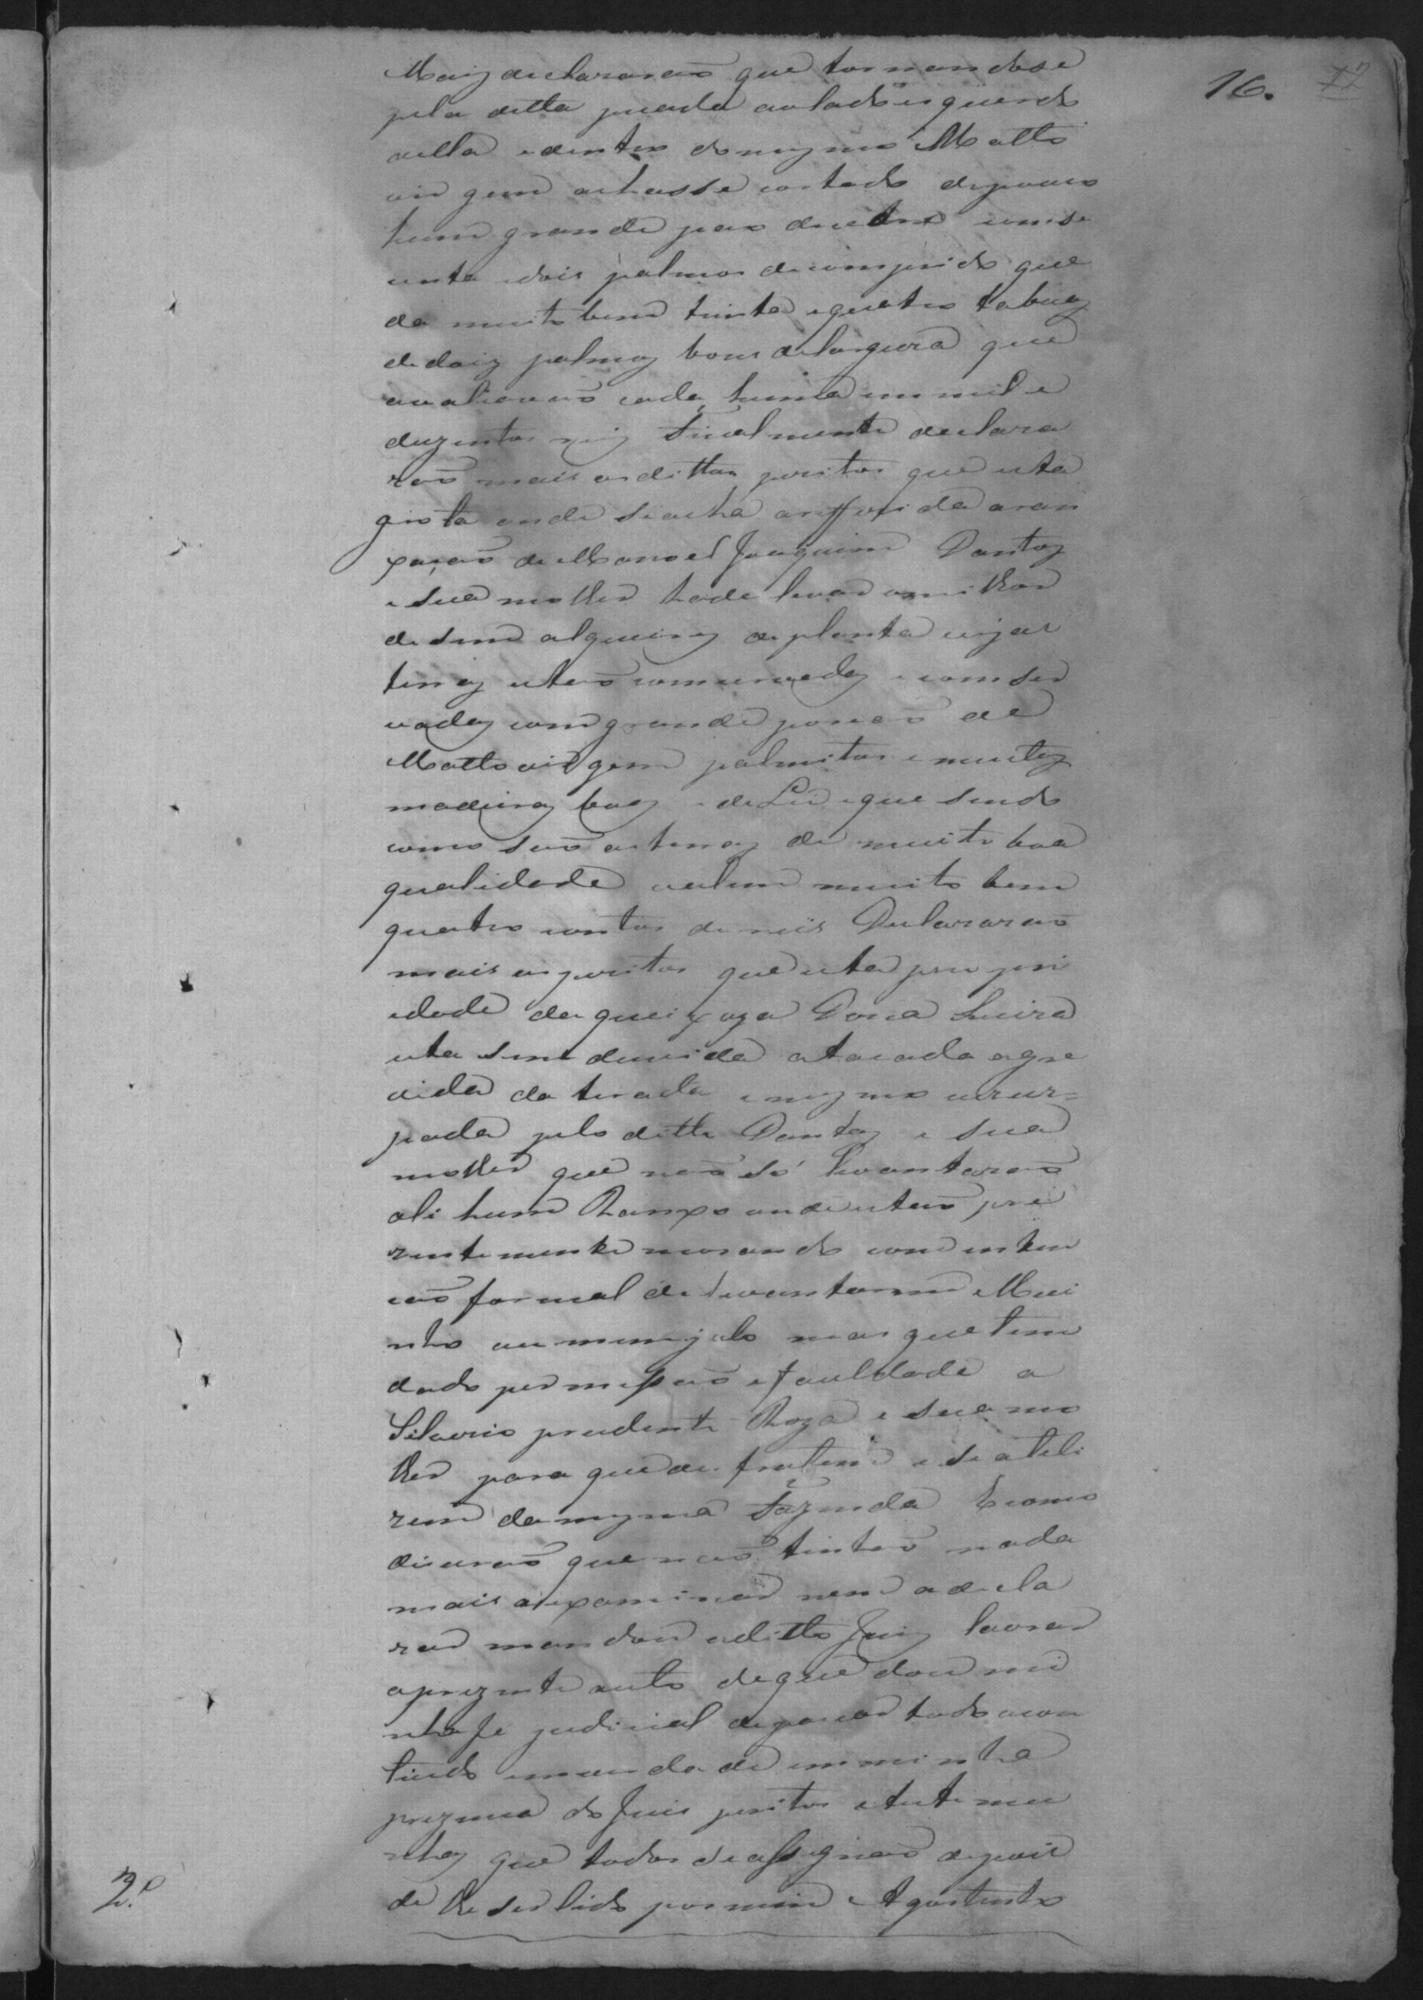 16. 17
Mais declararaõ que tornandose
pela ditta picada ao lado isquerdo
della e dentro do mesmo Matto
virgem achasse cortado de pouco
hum grande pao de com se
enta e dois palmos de comprido que
da muito bem trinta e quatro taboas
de dois palmos bons de largura que
avaliaraõ cada huma em mil e
duzentos reis Finalmente declara
raõ mais os dittos peritos que esta
grota onde se acha a refferida aran
xaçaõ de Manoel Joaquim Dantas
e sua molher hade levar o milhor
de sem alqueires de planta cujas
terras estaõ comservadas e comser
vadas com grande porçaõ de
Matto virgem palmitos e muitas
madeiras boas e de Lei e que sendo
como saõ as terras de muito boa
qualidade valem muito bem
quatro contos de reis Declararaõ
mais os peritos que esta propri
edade da queixoza Dona Luiza
esta sem duvida atacada agre
dida da tirada e mesmo uzur=
pada pelo ditto Dantas e sua
molher que naõ só levantaraõ
ali hum Ranxo onde estaõ pre
zentemente morando com inten
caõ formal de levantarem Moi
nho ou monjolo mas que tem
dado permissaõ e faculdade a
Silverio prudente Roza e sua mo
lher para que desfrutem e se utili
zem da mesma Fazenda E como
diceraõ que naõ tinhaõ nada
mais a examinar nem a decla
rar mandou o ditto Juiz lavrar
o prezente auto de que dou mi
nha fe judicial de passar todo o con
tiudo em verdade em minha
prezença do Juis peritos e testemu
nhas que todos se assignaõ depois
de lhe ser lido por mim Agostinho
2.º